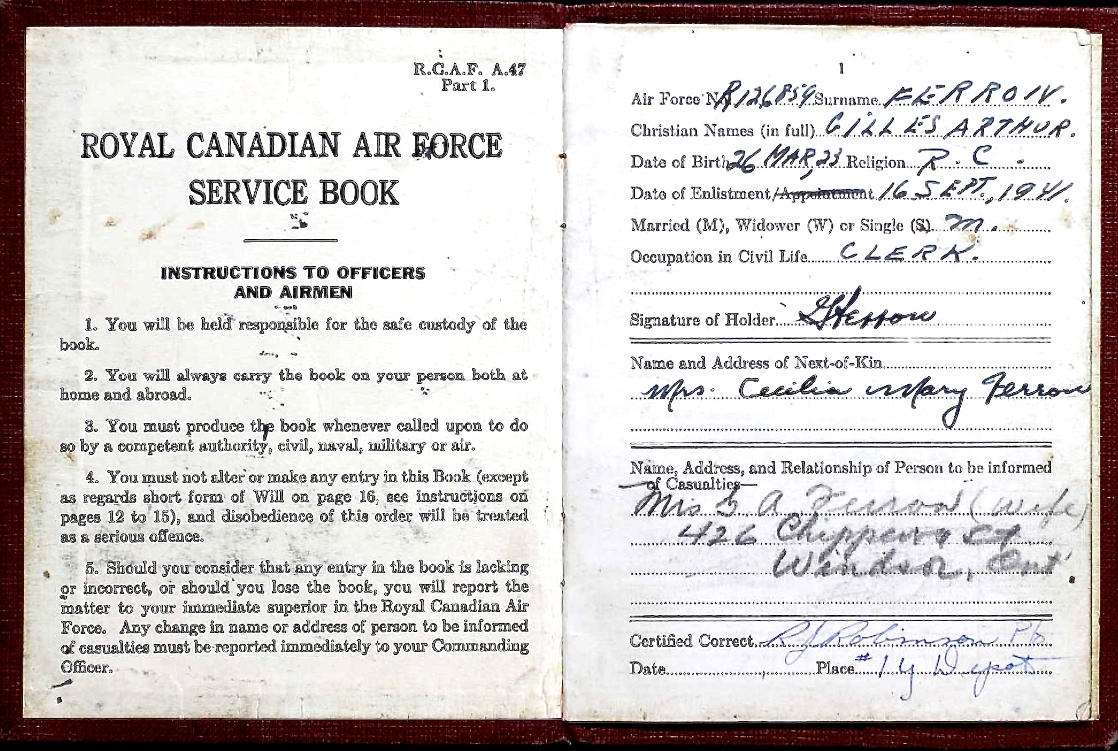 R.C.A.F. A.47
Part 1.
ROYAL CANADIAN AIR FORCE
SERVICE BOOK
INSTRUCTIONS TO OFFICERS
AND AIRMEN
1. You will be held responsible for the safe custody of the
book.
2. You will always carry the book on your person both at
home and abroad.
3. You must produce the book whenever called upon to do
so by a competent authority, civil, naval, military or air.
4. You must not alter or make any entry in this Book (except
as regards short form of Will on page 16, see instructions on
pages 12 to 15), and disobedience of this order will be treated
as a serious offence.
5. Should you consider that any entry in the book is lacking
or incorrect, or should you lose the book, you will report the
matter to your immediate superior in the Royal Canadian Air
Force. Any change in name or address of person to be informed
of casualties must be reported immediately to your Commanding
Officer.
1
Air Force No. R126859 Surname FERRON.
Christian Names (in full) GILLES ARTHUR.
Date of Birth 26 MAR, 23 Religion R.C.
Date of Enlistment/Appointment 16 SEPT., 1941.
Married (M), Widower (W) or Single (S) M.
Occupation in Civil Life CLERK.
Signature of Holder GFerron
Name and Address of Next-of-Kin
Mrs. Cecilia Mary Ferron
Name, Address, and Relationship of Person to be informed
of Casualties
Mrs G A Ferron (wife)
426 Chippewa St
Windsor, Ont.
Certified Correct RJ Robinson
Date Place #1 Y Depot